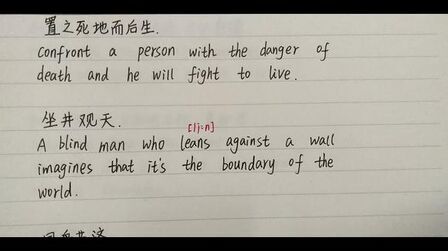 置之死地而后生.
Confront a person with the danger of
death and he will fight to live.
坐井观天.
A blind man who leans against a wall
imagines that it's the boundary of the
world.